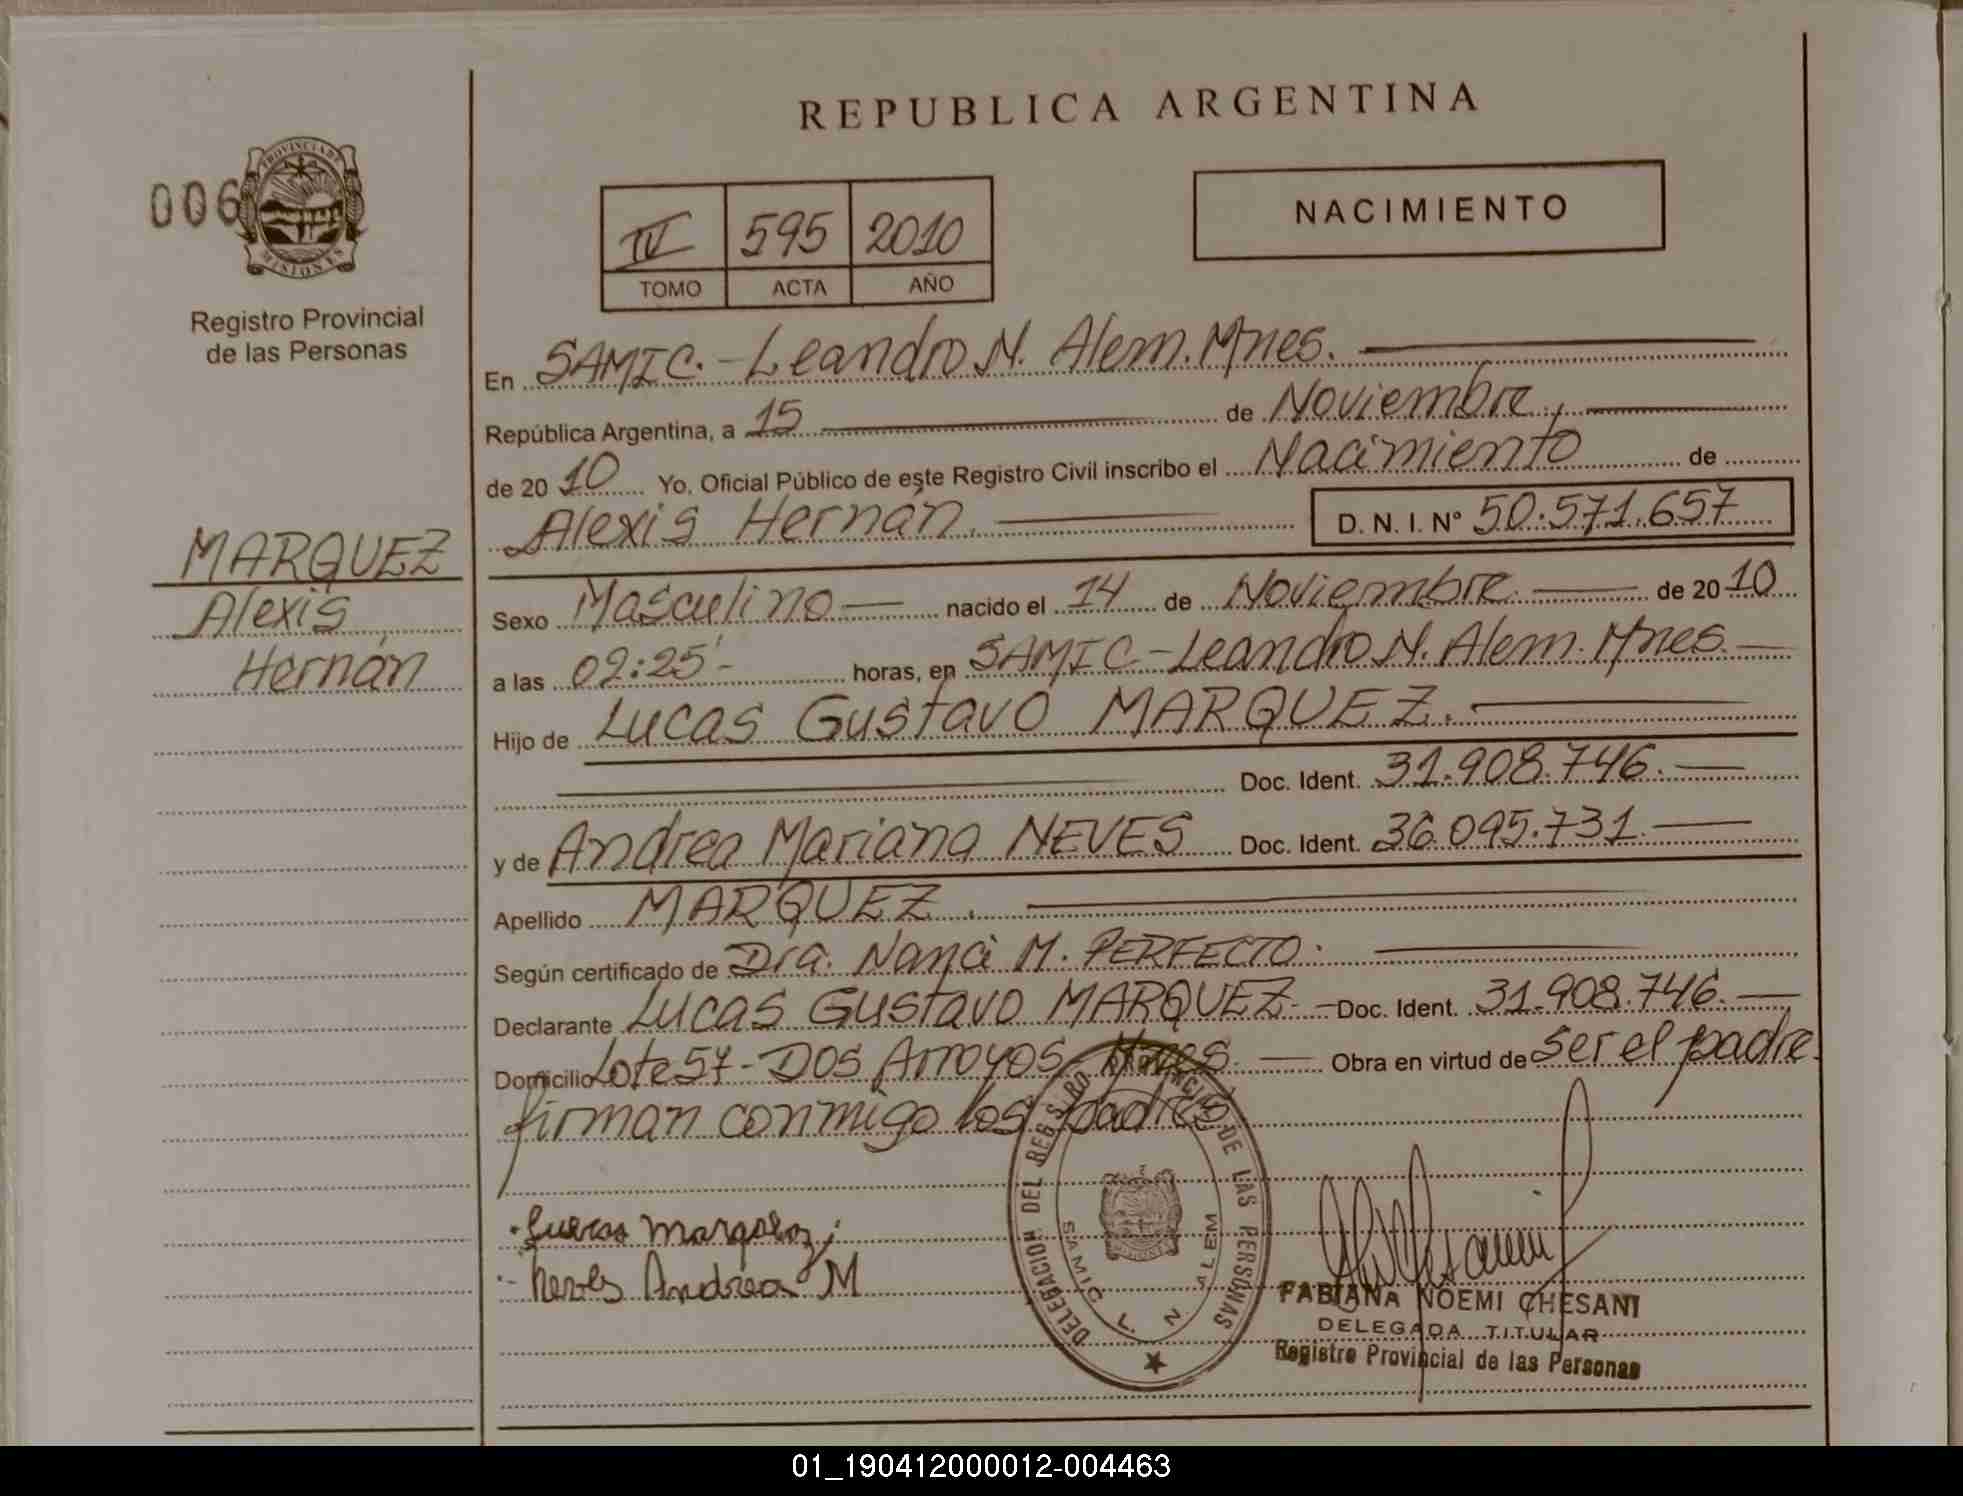 REPUBLICA ARGENTINA
006
PROVINCIA DE
MISIONES
Registro Provincial
de las Personas
IV 595 2010
TOMO ACTA AÑO
NACIMIENTO
En SAMIC.-Leandro N. Alem.Mnes.
República Argentina, a 15 de Noviembre,
de 20 10 Yo, Oficial Público de este Registro Civil inscribo el Nacimiento de
Alexis Hernán. D. N. I. Nº 50.571.657
MARQUEZ
Alexis
Hernán
Sexo Masculino nacido el 14 de Noviembre de 20 10
a las 02:25'- horas, en SAMIC-Leandro N. Alem. Mnes.
Hijo de Lucas Gustavo MARQUEZ.
Doc. Ident. 31.908.746.
y de Andrea Mariana NEVES Doc. Ident. 36.095.731.
Apellido MARQUEZ.
Según certificado de Dra. Nanci M. PERFECTO.
Declarante Lucas Gustavo MARQUEZ- Doc. Ident. 31.908.746.
Domicilio Lote 57-DOS Arroyos, Mnes. Obra en virtud de ser el padre.
firman conmigo los padres
Marquez
Neves Andrea M
DELEGACION DEL REGISTRO PROVINCIAL DE LAS PERSONAS
SAMIC L. N. ALEM
FABIANA NOEMI CHESANI
DELEGADA TITULAR
Registro Provincial de las Personas
01_190412000012-004463